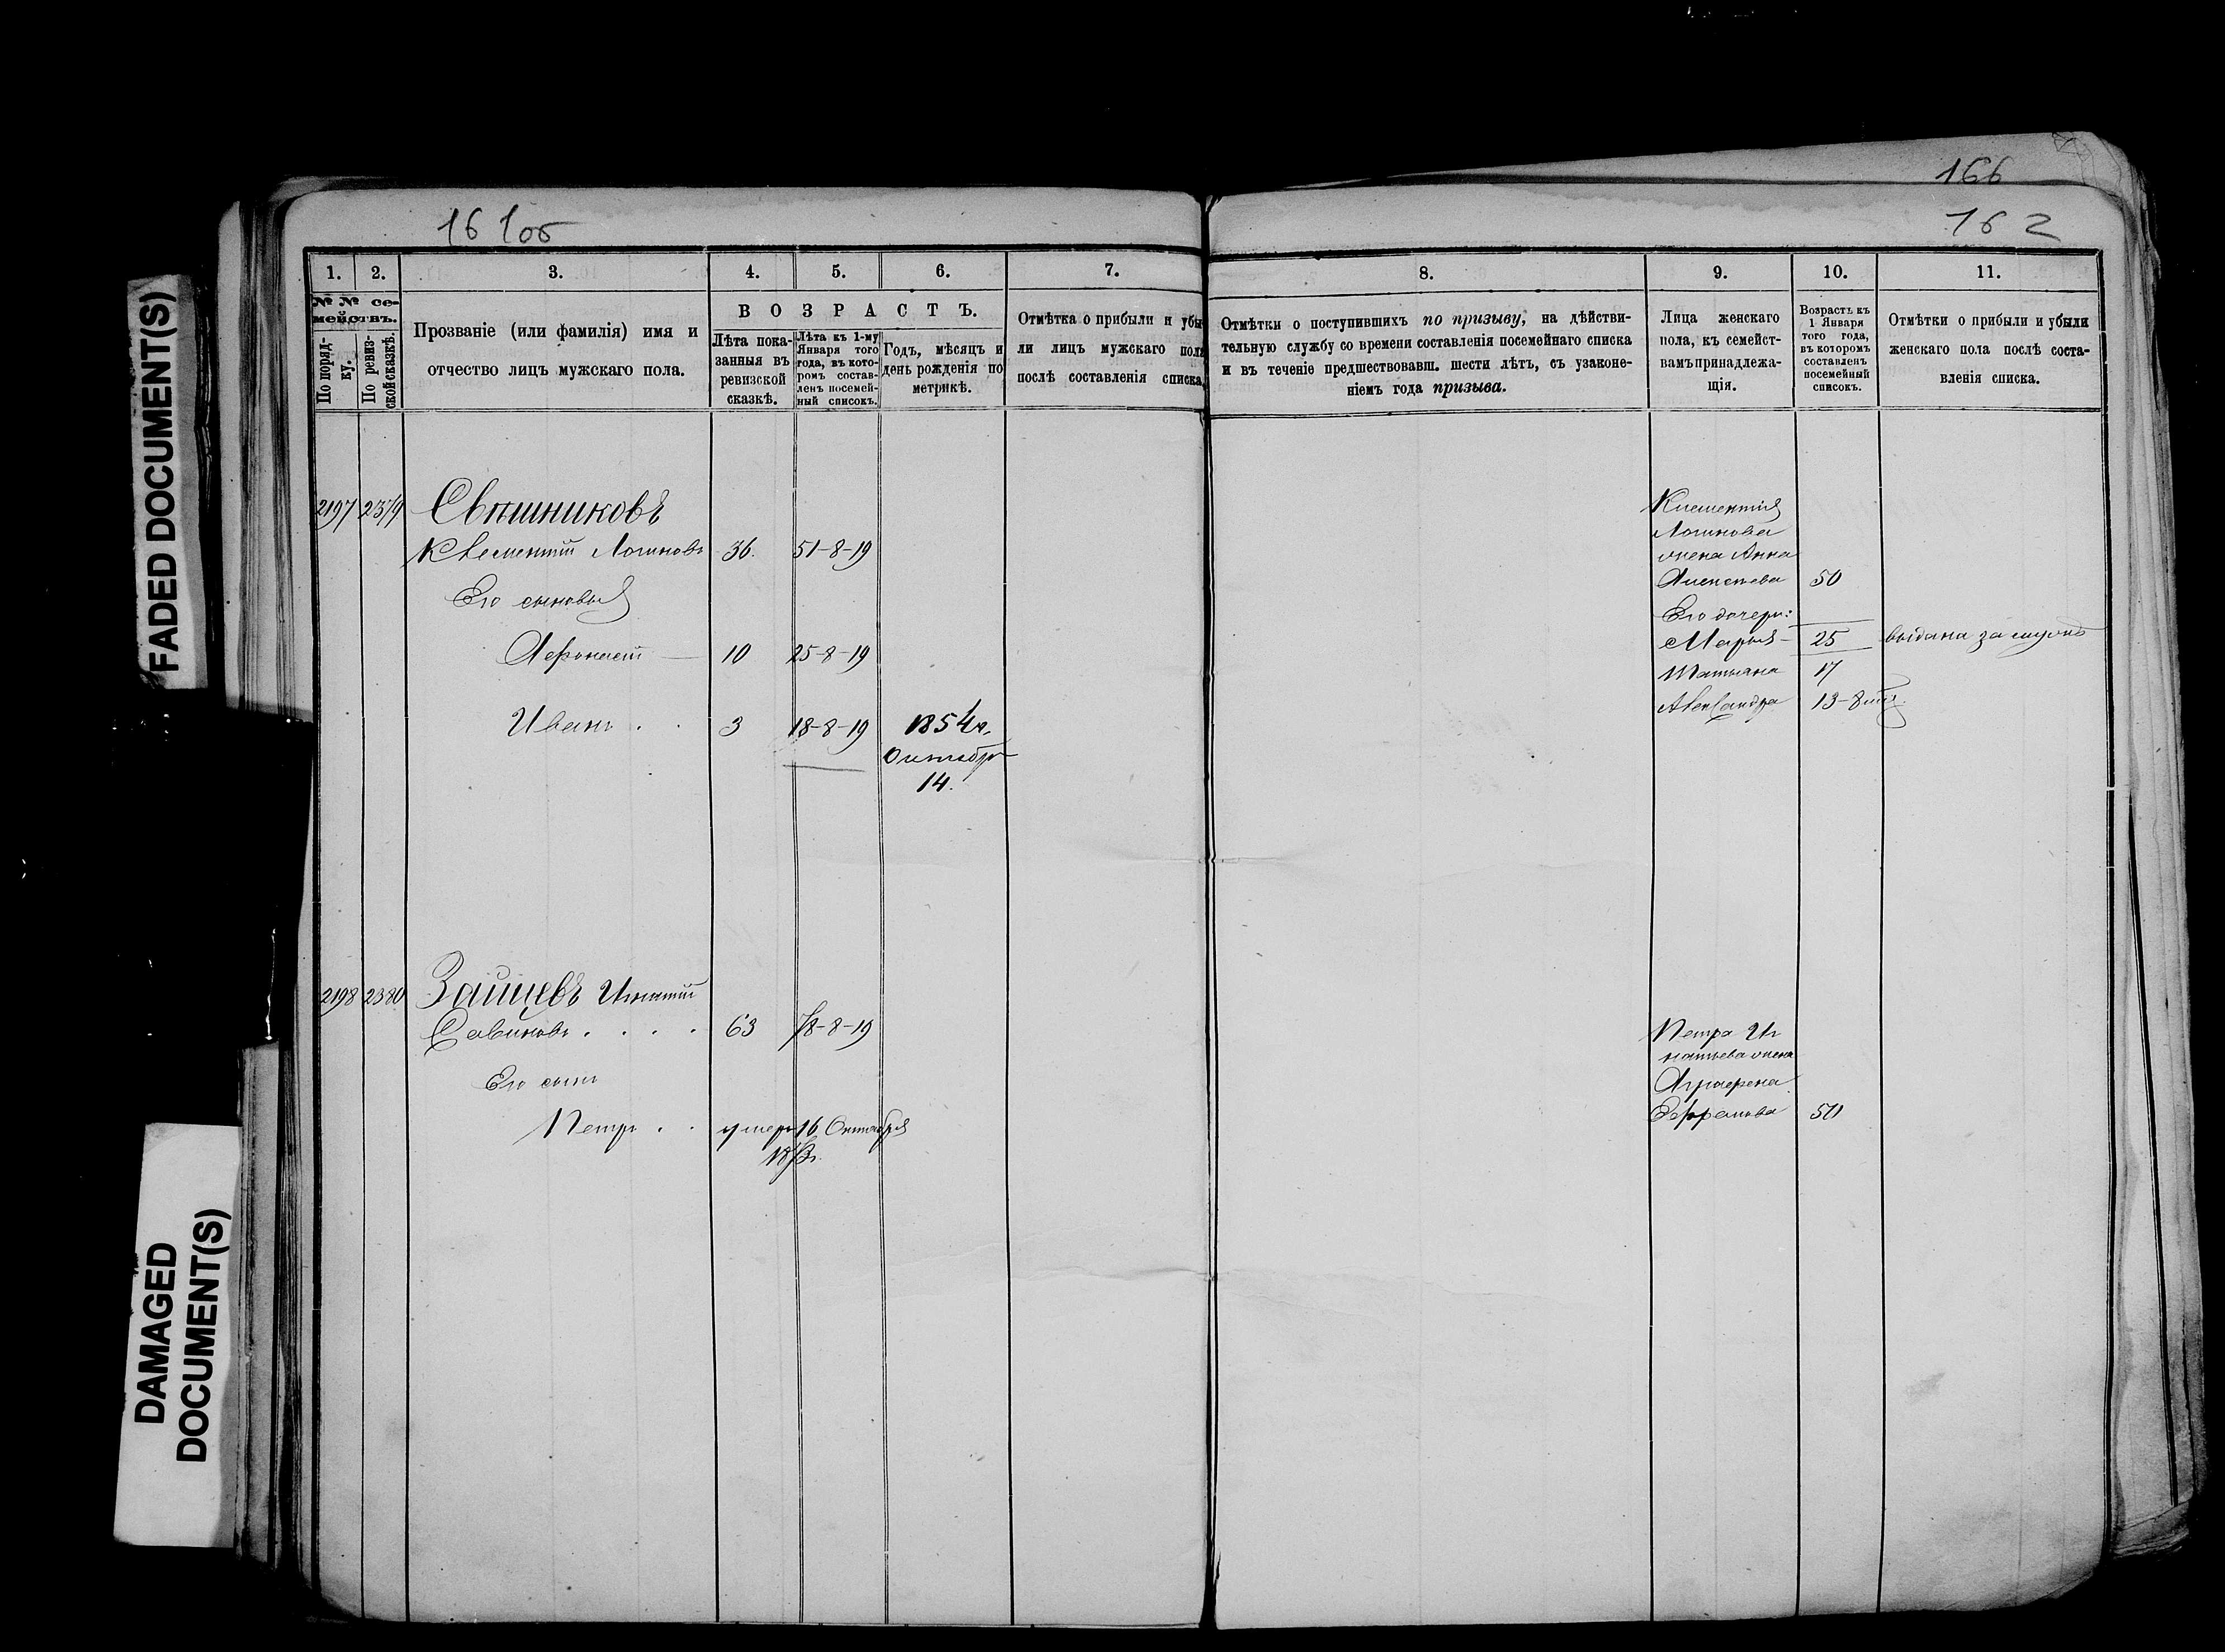 FADED DOCUMENT(S)
DAMAGED
DOCUMENT(S)
166
161об
162
1. 2. 3. 4. 5. 6. 7. 8. 9. 10. 11.
№ № се-
мействъ.
По поряд-
ку.
По ревиз-
ской сказкѣ.
Прозваніе (или фамилія) имя и
отчество лицъ мужскаго пола.
ВОЗРАСТЪ.
Лѣта пока-
занныя въ
ревизской
сказкѣ.
Лѣта къ 1-му
Января того
года, въ кото-
ромъ состав-
ленъ посемей-
ный списокъ.
Годъ, мѣсяцъ и
день рожденія по
метрикѣ.
Отмѣтка о прибыли и убы-
ли лицъ мужскаго пола
послѣ составленія списка.
Отмѣтки о поступившихъ по призыву, на дѣйстви-
тельную службу со времени составленія посемейнаго списка
и въ теченіе предшествовавш. шести лѣтъ, съ узаконе-
ніемъ года призыва.
Лица женскаго
пола, къ семейст-
вамъ принадлежа-
щія.
Возрастъ къ
1 Января
того года,
въ которомъ
составленъ
посемейный
списокъ.
Отмѣтки о прибыли и убыли
женскаго пола послѣ соста-
вленія списка.
2197 2379 Свѣшниковъ
Клементій Логиновъ 36. 51-8-19
Его сыновья
Афонасій — 10 25-8-19
Иванъ . . 3 18-8-19 1854г.
Октября
14.
Клементія
Логинова
жена Анна
Алексѣева 50
Его дочери:
Марья - 25 выдана за мужъ
Татьяна 17
Александра 13-8мѣ.
2198 2380 Зайцевъ Игнатій
Савиновъ . . . . 63 78-8-19
Его сынъ
Петръ . . умеръ 16 Октября
187
Петра Иг
натьева жена
Аграфена
50